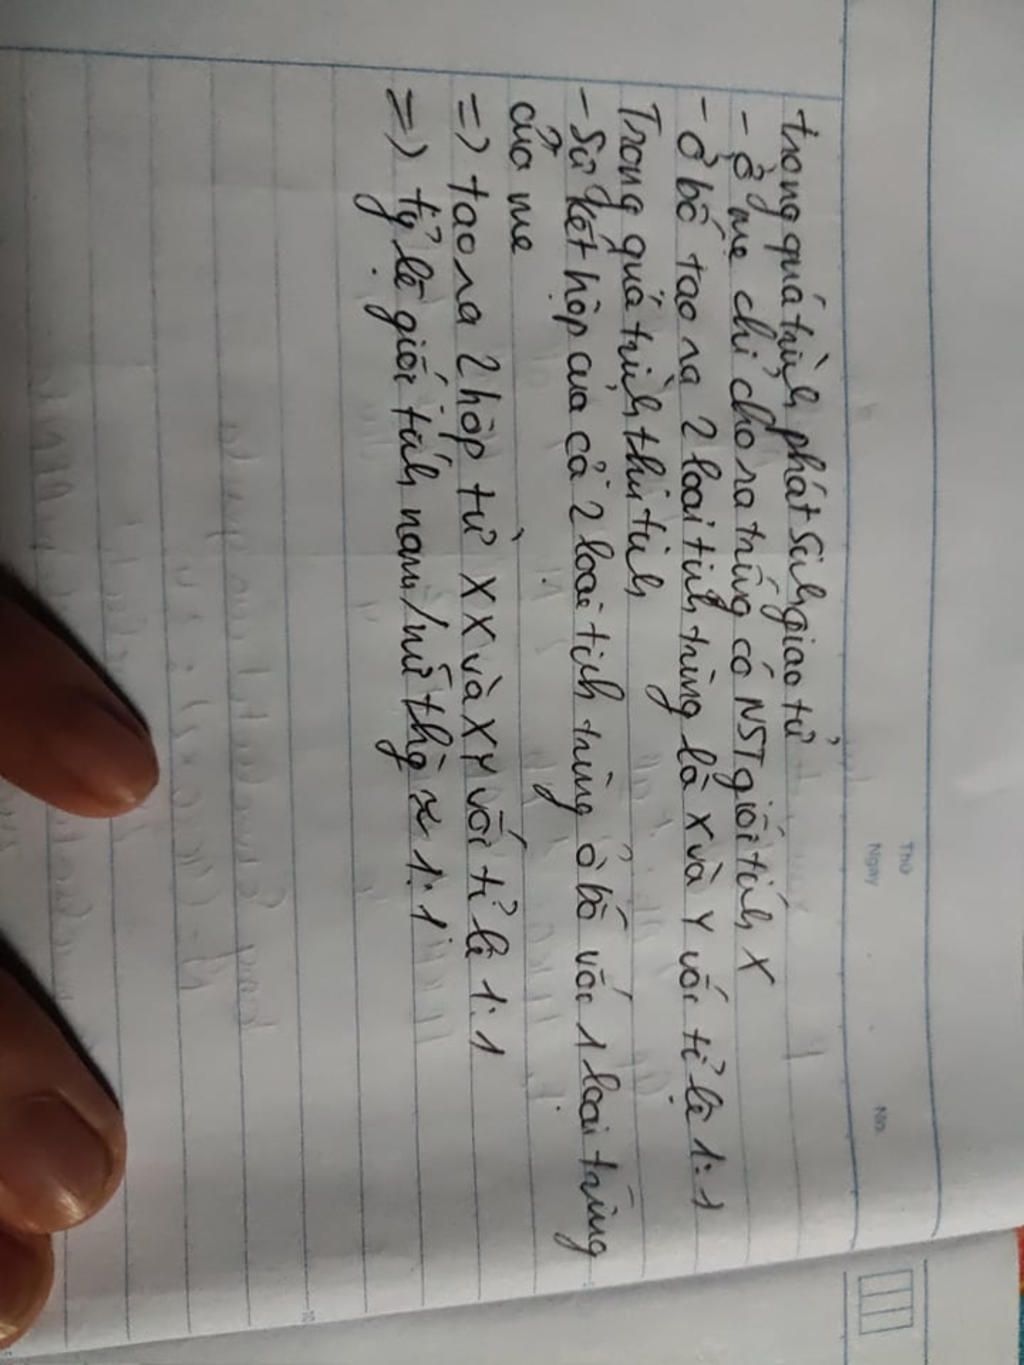 Thứ
Ngày
No.
trong quá trình phát sinh giao tử
- ở mẹ chỉ cho ra trứng có NST giới tính X
- ở bố tạo ra 2 loại tinh trùng là X và Y với tỉ lệ 1:1
Trong quá trình thụ tinh
- Sự kết hợp của cả 2 loại tinh trùng ở bố với 1 loại trứng
của mẹ
=> tạo ra 2 hợp tử XX và XY với tỉ lệ 1:1
=> tỷ lệ giới tính nam/nữ thg ≈ 1:1